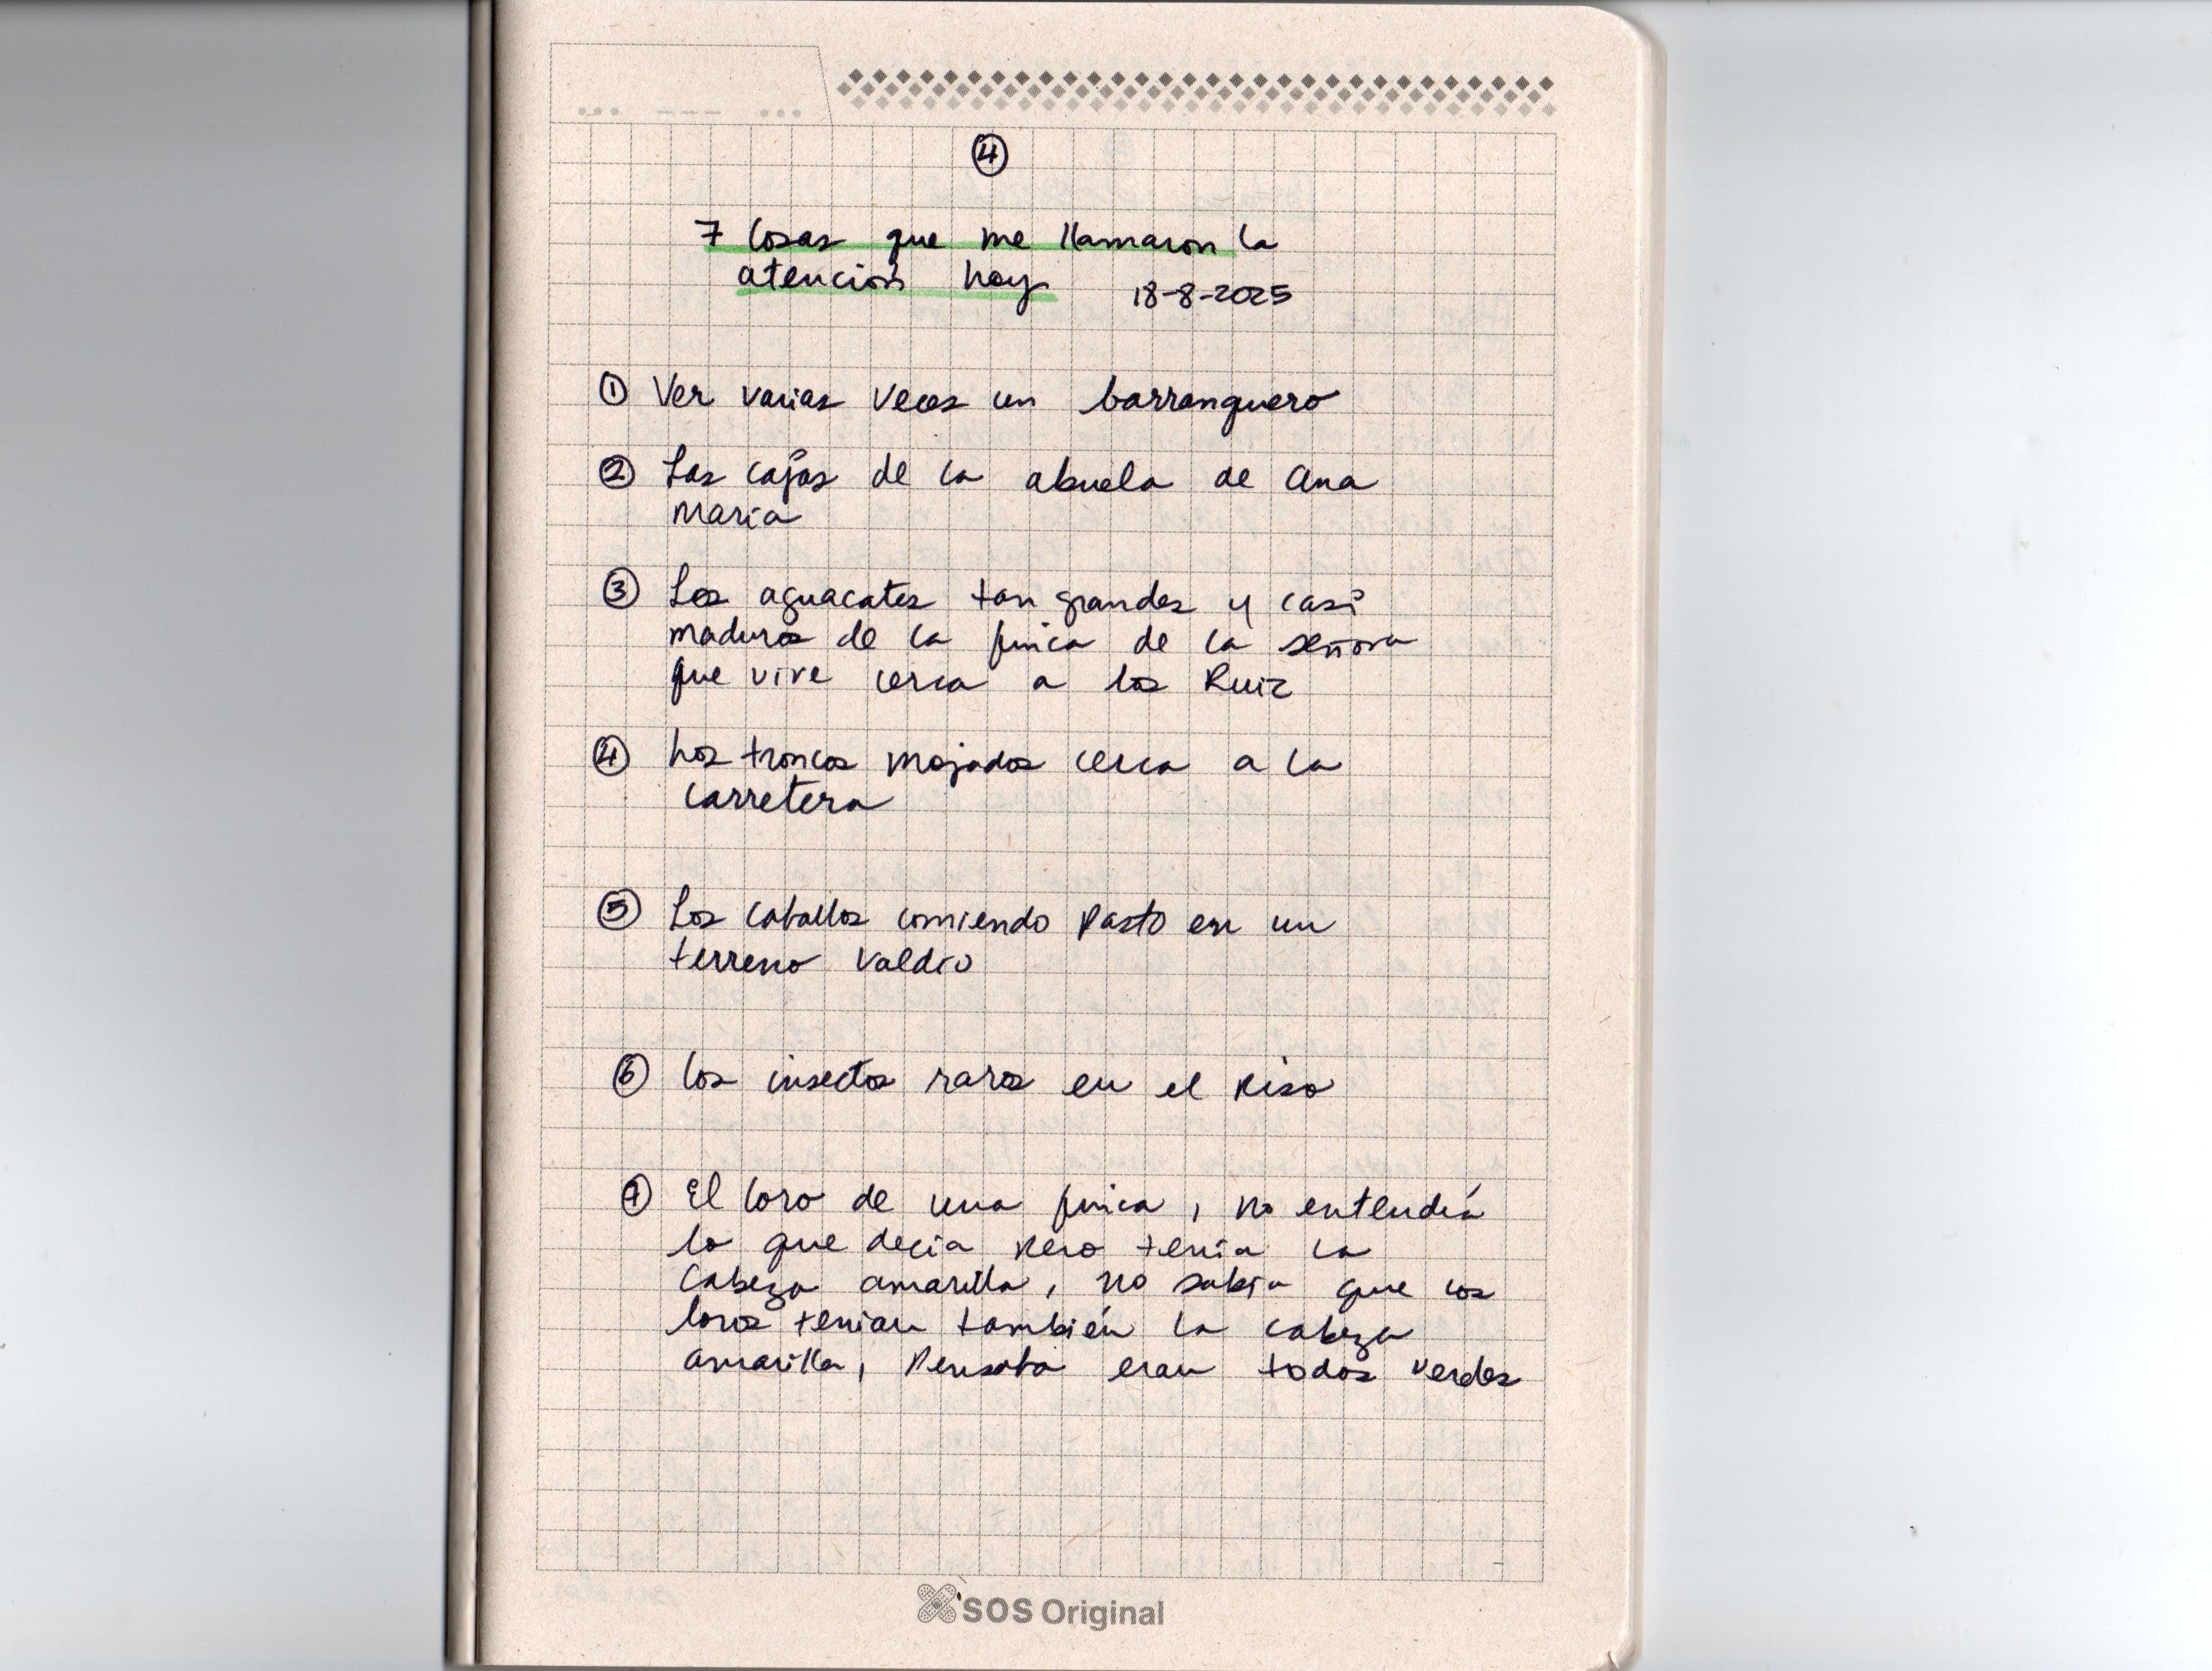 4
7 cosas que me llamaron la
atención hoy 18-8-2025
1 Ver varias veces un barranquero
2 Las cajas de la abuela de Ana
maría
3 Los aguacates tan grandes y casi
maduros de la finca de la señora
que vive cerca a los Ruiz
4 Los troncos mojados cerca a la
carretera
5 Los caballos comiendo pasto en un
terreno valdio
6 los insectos raros en el piso
7 El loro de una finca, no entendía
lo que decía pero tenia la
cabeza amarilla, no sabia que los
loros tenian también la cabeza
amarilla, pensaba eran todos verdes
SOS Original